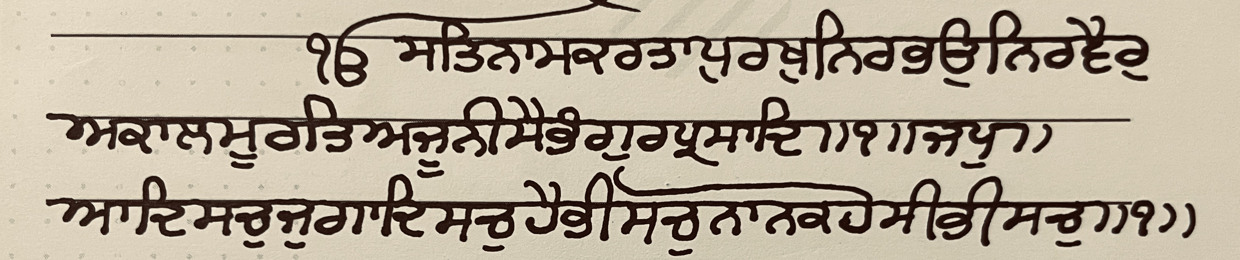 ੴ ਸਤਿਨਾਮਕਰਤਾਪੁਰਖੁਨਿਰਭਉਨਿਰਵੈਰੁ
ਅਕਾਲਮੂਰਤਿਅਜੂਨੀਸੈਭੰਗੁਰਪ੍ਰਸਾਦਿ॥੧॥ਜਪੁ॥
ਆਦਿਸਚੁਜੁਗਾਦਿਸਚੁਹੈਭੀਸਚੁਨਾਨਕਹੋਸੀਭੀਸਚੁ॥੧॥